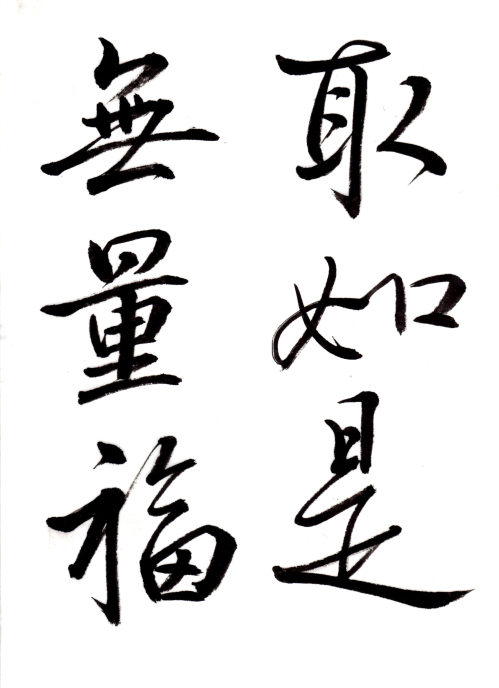 取如是
無量福